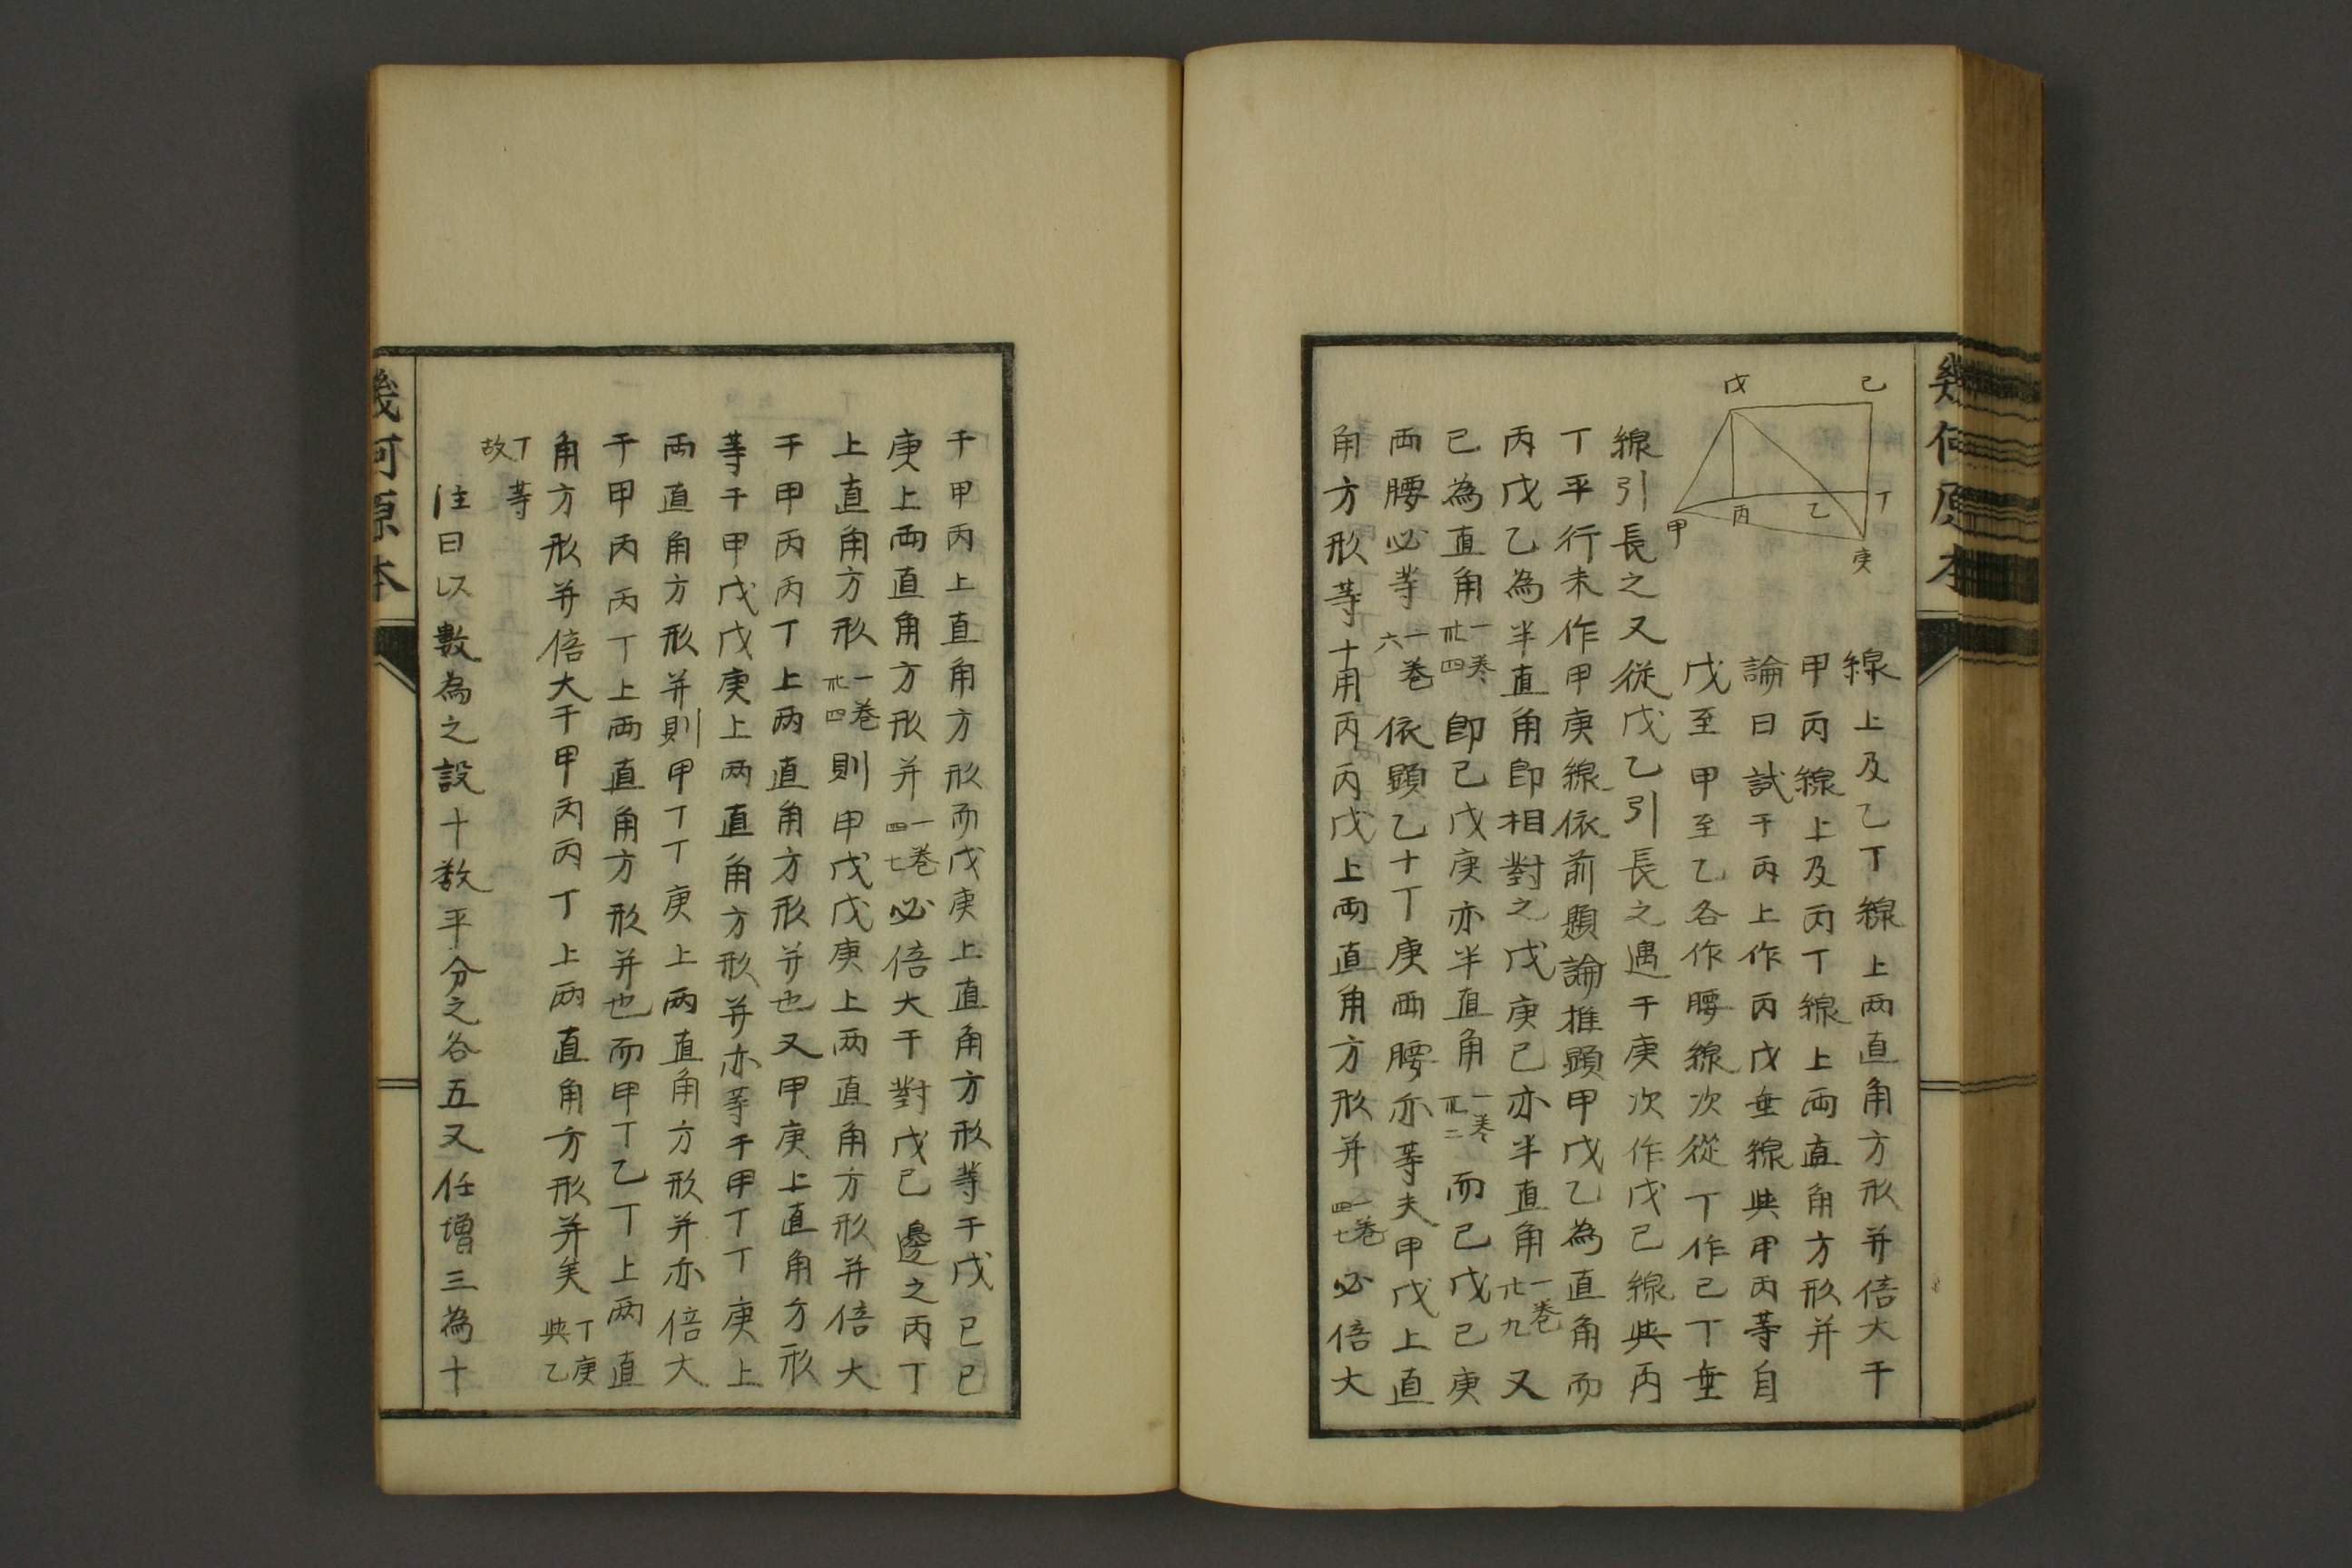 幾何原本
戊 己
甲 丙 乙 丁
庚
線上及乙丁線上两直角方形并倍大于
甲丙線上及丙丁線上両直角方形并
論曰試于丙上作丙戊垂線與甲丙等自
戊至甲至乙各作腰線次從丁作己丁垂
線引長之又從戊乙引長之遇于庚次作戊己線與丙
丁平行末作甲庚線依前題論推顕甲戊乙為直角而
丙戊乙為半直角卽相對之戊庚己亦半直角一卷卄九又
己為直角一卷卅四卽己戊庚亦半直角一卷卅二而己戊己庚
両腰必等一卷六依顕乙十丁庚両腰亦等夫甲戊上直
角方形等十甪丙丙戊上両直角方形并一卷四七必倍大
于甲丙上直角方形而戊庚上直角方形等于戊己己
庚上両直角方形并一卷四七必倍大于對戊己邊之丙丁
上直角方形一卷卅四則甲戊戊庚上两直角方形并倍大
于甲丙丙丁上两直角方形并也又甲庚上直角方形
等于甲戊戊庚上两直角方形并亦等于甲丁丁庚上
両直角方形并則甲丁丁庚上两直角方形并亦倍大
于甲丙丙丁上両直角方形并也而甲丁乙丁上两直
角方形并倍大于甲丙丙丁上两直角方形并矣丁庚與乙
丁等故
注曰以數為之設十数平分之各五又任增三為十
幾何原本